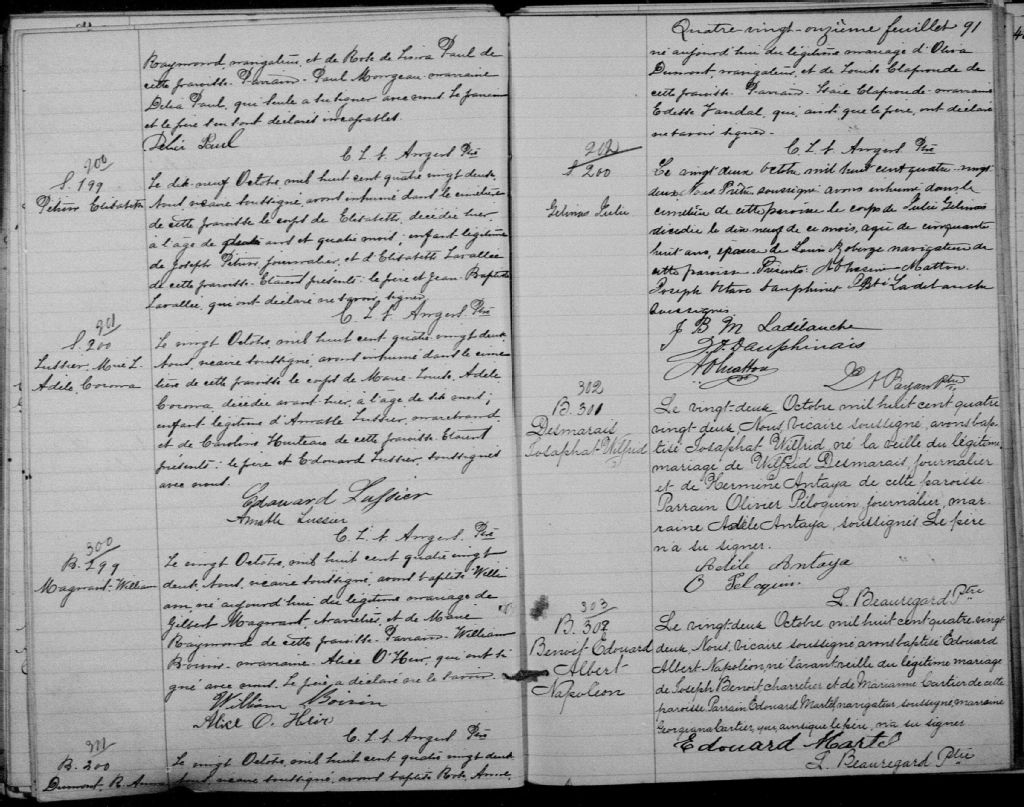 Raymond, navigateur, et de Rose de Lima Paul de
cette paroisse. Parrain - Paul Mongeau - marraine
Delia Paul, qui seule a su signer avec nous. Le parrain
et le père s'en sont déclarés incapables.
Delia Paul
C. L. A. Angers Ptre
200
S. 199
Elisabeth
Le dix-neuf Octobre, mil huit cent quatre vingt deux,
Nous, vicaire soussigné, avons inhumé dans le cimetière
de cette paroisse le corps de Elisabeth, décédée hier,
à l'âge de ans et quatre mois; enfant légitime
de Joseph journalier, et d'Elisabeth Lavallée
de cette paroisse. Etaient présents: le père et Jean-Baptiste
Lavallée, qui ont déclaré ne savoir signer.
C. L. A. Angers Ptre
201
S. 200
Lussier, Marie L.
Adèle, Corona
Le vingt Octobre, mil huit cent quatre vingt deux,
Nous, vicaire soussigné, avons inhumé dans le cime-
tière de cette paroisse le corps de Marie-Louise, Adèle
Corona, décédée avant-hier, à l'âge de dix mois;
enfant légitime d'Amable Lussier, marchand,
et de Caroline de cette paroisse. Etaient
présents: le père et Edouard Lussier, soussignés
avec nous.
Edouard Lussier
Amable Lussier
C. L. A. Angers Ptre
300
B. 299
Magnant-William
Le vingt Octobre, mil huit cent quatre vingt
deux, Nous, vicaire soussigné, avons baptisé Willi-
am, né aujourd'hui du légitime mariage de
Gilbert Magnant, et de Marie
Raymond de cette paroisse. Parrain - William
marraine - Alice O'Heir, qui ont si-
gné avec nous. Le père a déclaré ne le savoir.
William
Alice O. Heir
C. L. A. Angers Ptre
301
B. 200
Dumont, R. Anna
Le vingt Octobre, mil huit cent quatre vingt deux
Nous, vicaire soussigné, avons baptisé Rose, Anna,
Quatre vingt-onzième feuillet 91
né aujourd'hui du légitime mariage d'Oliva
Dumont, navigateur, et de Louise Laprade de
cette paroisse. Parrain - Isaïe Laprade - marraine
Vandal, qui, ainsi que le père, ont déclaré
ne savoir signer.
C. L. A. Angers Ptre
202
S. 200
Gelinas Julie
Le vingt deux Octobre mil huit cent quatre-vingt
deux Nous Prêtre soussigné avons inhumé dans le
cimetière de cette paroisse le corps de Julie Gelinas
décédée le dix neuf de ce mois, agée de cinquante
huit ans, épouse de Louis Roberge navigateur de
cette paroisse. Présents: Matton
Joseph Octave Dauphinais J Bte Ladébauche
soussignés
J B M Ladébauche
J. O. Dauphinais
Matton
Payan Ptre
302
B. 301
Desmarais
Josaphat Wilfrid
Le vingt-deux Octobre mil huit cent quatre
vingt deux Nous, vicaire soussigné, avons bap-
tisé Josaphat Wilfrid, né la veille du légitime
mariage de Wilfrid Desmarais, journalier
et de Hermine Antaya de cette paroisse
Parrain Olivier Péloquin, journalier, mar-
raine Adèle Antaya, soussignés Le père
n'a su signer.
Adèle Antaya
O Peloquin
L. Beauregard Ptre
303
B. 302
Benoit Edouard
Albert
Napoléon
Le vingt-deux Octobre mil huit cent quatre-vingt
deux, Nous, vicaire soussigné avons baptisé Edouard
Albert Napoléon, né l'avant veille du légitime mariage
de Joseph Benoit, charretier et de Marianne Cartier de cette
paroisse Parrain Edouard Martel, navigateur, soussigné, marraine
Georgiana Cartier, qui, ainsi que le père, n'a su signer
Edouard Martel
L. Beauregard Ptre